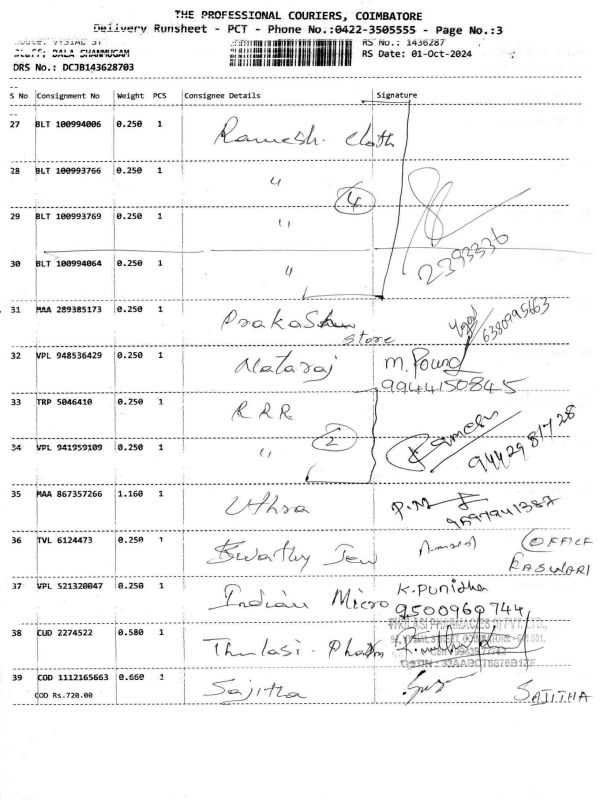 THE PROFESSIONAL COURIERS, COIMBATORE
Delivery Runsheet - PCT - Phone No.:0422-3505555 - Page No.:3
RS No.: 1436287
BALA SHANMUGAM
RS Date: 01-Oct-2024
DRS No.: DCJB143628703
S No Consignment No Weight PCS Consignee Details Signature
27 BLT 100994006 0.250 1 Ramesh. Cloth
28 BLT 100993766 0.250 1 "
4
29 BLT 100993769 0.250 1 "
2393336
30 BLT 100994064 0.250 1 "
31 MAA 289385173 0.250 1 Prakash store 6380995663
32 VPL 948536429 0.250 1 Nataraj M.
9944150845
33 TRP 5046410 0.250 1 RRR
2 Ramesh
34 VPL 941959109 0.250 1 " 9442981728
35 MAA 867357266 1.160 1 Uthra P.M
9597941387
36 TVL 6124473 0.250 1 Swathy Jew OFFICE
RASWARI
37 VPL 521320047 0.250 1 Indian Micro K. Punidha
9500960744
THULASI PHARMACIES PVT. LTD.,
38 CUD 2274522 0.580 1 Thulasi - Pharm
39 COD 1112165663 0.660 1 Sajitha SAJITHA
COD Rs.720.00